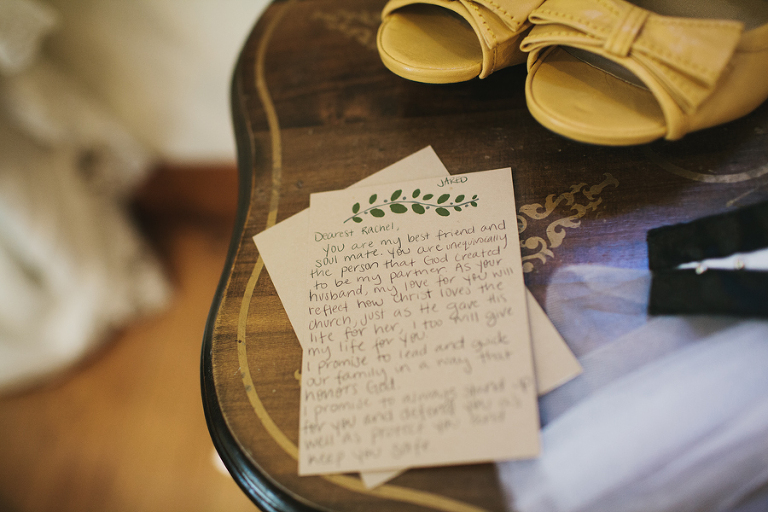 JARED
Dearest Rachel,
You are my best friend and
soul mate. You are inequivocally
the person that God created
to be my partner. As your
husband, my love for you will
reflect how Christ loves the
church, just as He gave His
life for her, I too will give
my life for you.
I promise to lead and guide
our family in a way that
honors God.
I promise to always stand up
for you and defend you as
well as protect you and
keep you safe